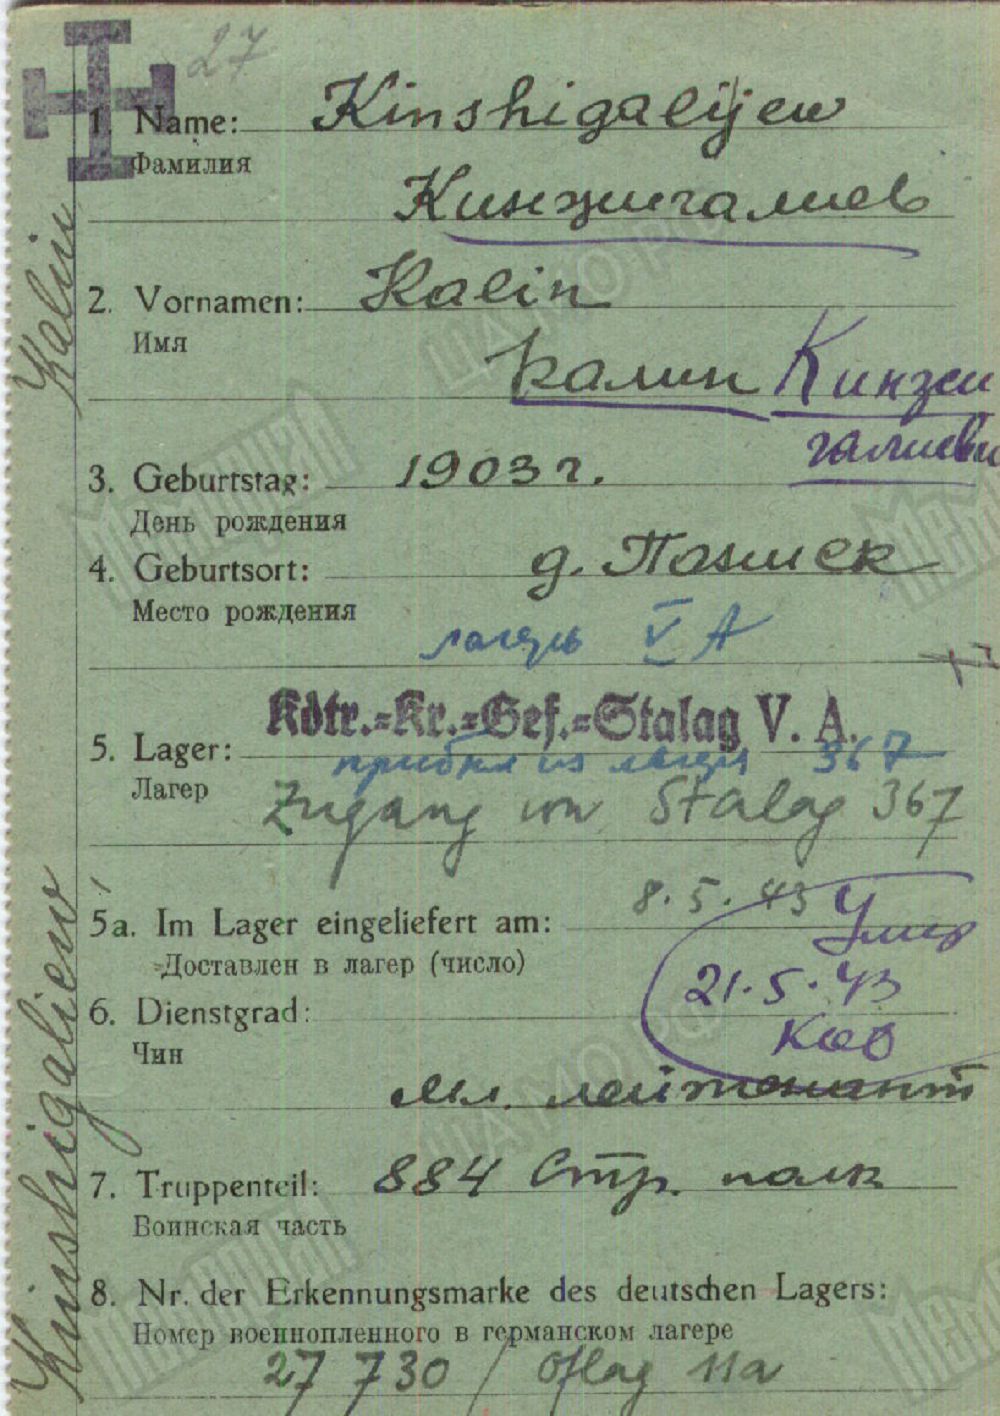 27
1. Name: Kinshigalijew
Фамилия
Кинжигалиев
2. Vornamen: Kalin
Имя
Калин Кинзи
галиеви
3. Geburtstag: 1903 г.
День рождения
4. Geburtsort: д.
Место рождения
лагерь V A
Kdtr.=Kr.=Gef.=Stalag V. A.
5. Lager:
прибыл из лагеря 367
Лагер
Zugang von Stalag 367
5a. Im Lager eingeliefert am: 8.5.43
Умер
Доставлен в лагер (число)
21.5.43
6. Dienstgrad:
Чин
Мл. лейтенант
7. Truppenteil: 884 Стр. полк
Воинская часть
8. Nr. der Erkennungsmarke des deutschen Lagers:
Номер военнопленного в германском лагере
27 730 / Oflag 11a
Kalin
Kinshigaliew
ЦАМО РФ
Мемориал